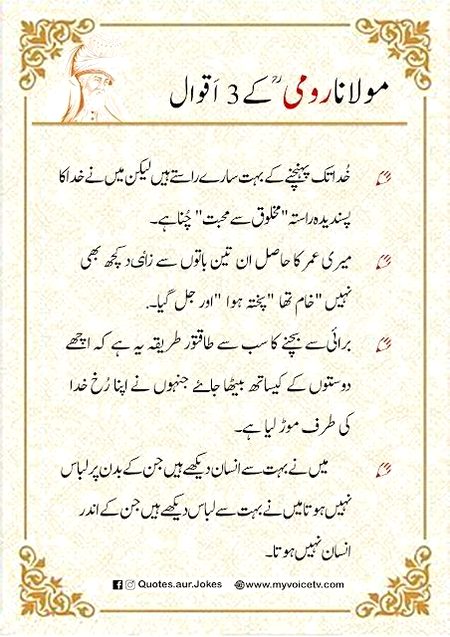 مولانا رومیؒ کے 3 اَقوال
خُدا تک پہنچنے کے بہت سارے راستے ہیں لیکن میں نے خدا کا
پسندیدہ راستہ "مخلوق سے محبت" چُنا ہے۔
میری عمر کا حاصل ان تین باتوں سے زائد کچھ بھی
نہیں "خام تھا "پختہ ہوا "اور جل گیا۔
برائی سے بچنے کا سب سے طاقتور طریقہ یہ ہے کہ اچھے
دوستوں کے کیساتھ بیٹھا جائے جنہوں نے اپنا رُخ خدا
کی طرف موڑ لیا ہے۔
میں نے بہت سے انسان دیکھے ہیں جن کے بدن پر لباس
نہیں ہوتا میں نے بہت سے لباس دیکھے ہیں جن کے اندر
انسان نہیں ہوتا۔
Quotes.aur.Jokes www.myvoicetv.com